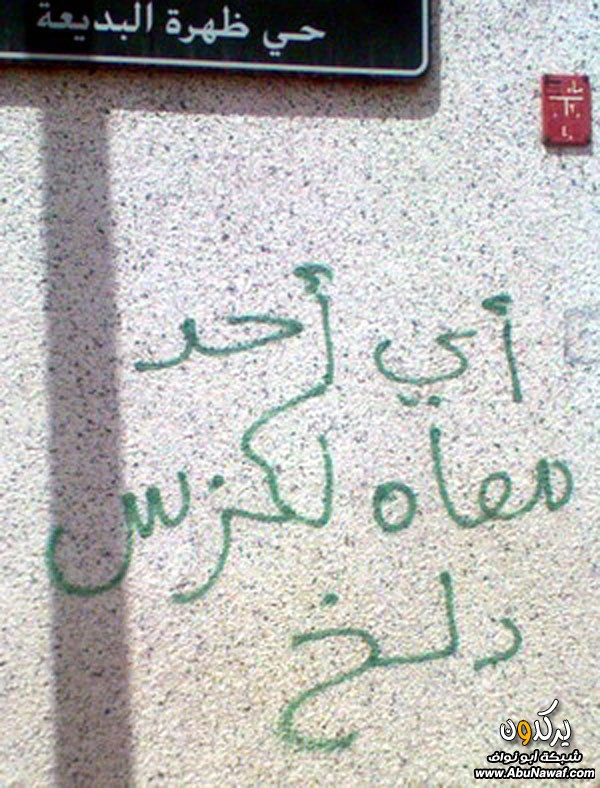 حي ظهرة البديعة
أي أحد
معاه لكزس
دلخ
يركدون
شبكة أبو نواف
www.AbuNawaf.com